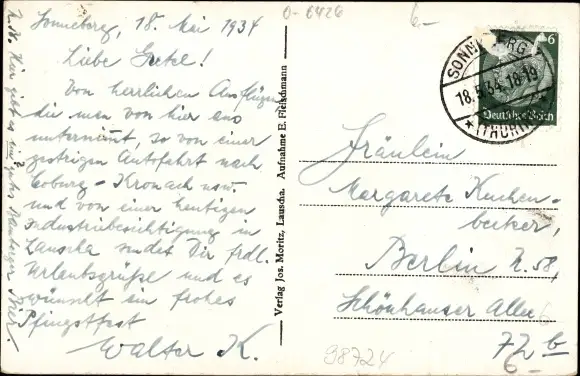 Sonneberg, 18. Mai 1934
Liebe Gretel!
Von herrlichen Ausflügen
die man von hier aus
unternimmt, so von einer
gestrigen Autofahrt nach
Coburg - Kronach usw.
und von einer heutigen
Industriebesichtigung in
Lauscha sendet Dir frdl.
Urlaubsgrüße und es
wünscht ein frohes
Pfingstfest
Walter K.
N.B. Hier gibt es ein gutes
Bier!
Verlag Jos. Moritz, Lauscha. Aufnahme E. Fleischmann
0-6426
6-
6
SONNEBERG
18.5.34.18-19
(THÜR.)
Deutsches Reich
Fräulein
Margarete Kuchen-
becker,
Berlin N.58,
Schönhauser Allee
72 b
6-
98724